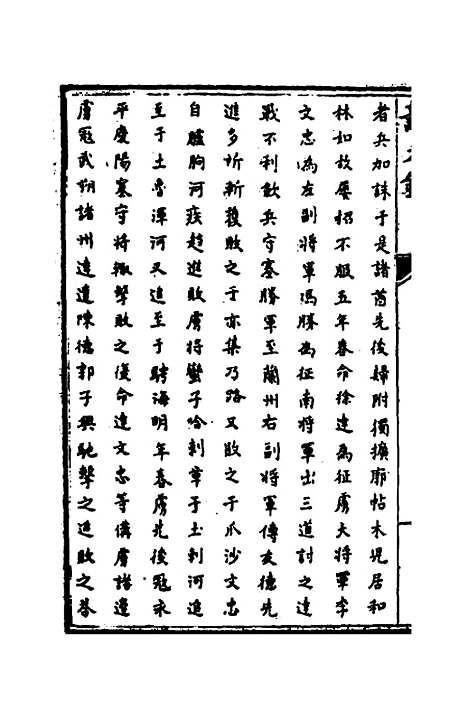 者兵加誅于是諸酋先後婦附獨擴廓帖木兒居和
林如故屢招不服五年春命徐達為征虜大將軍李
文忠為左副將軍馮勝為征南將軍出三道討之達
戰不利歛兵守塞勝軍至蘭州右副將軍傅友德先
進多斫斬獲敗之于亦集乃路又敗之于爪沙文忠
自臚朐河疾趨進敗虜將蠻子哈剌章于土剌河追
至于土魯渾河又進至于騁海明年春虜先後寇永
平慶陽塞守將輒擊敗之復命達文忠等備虜諸邊
虜寇武朔諸州達遣陳德郭子興馳擊之追敗之荅